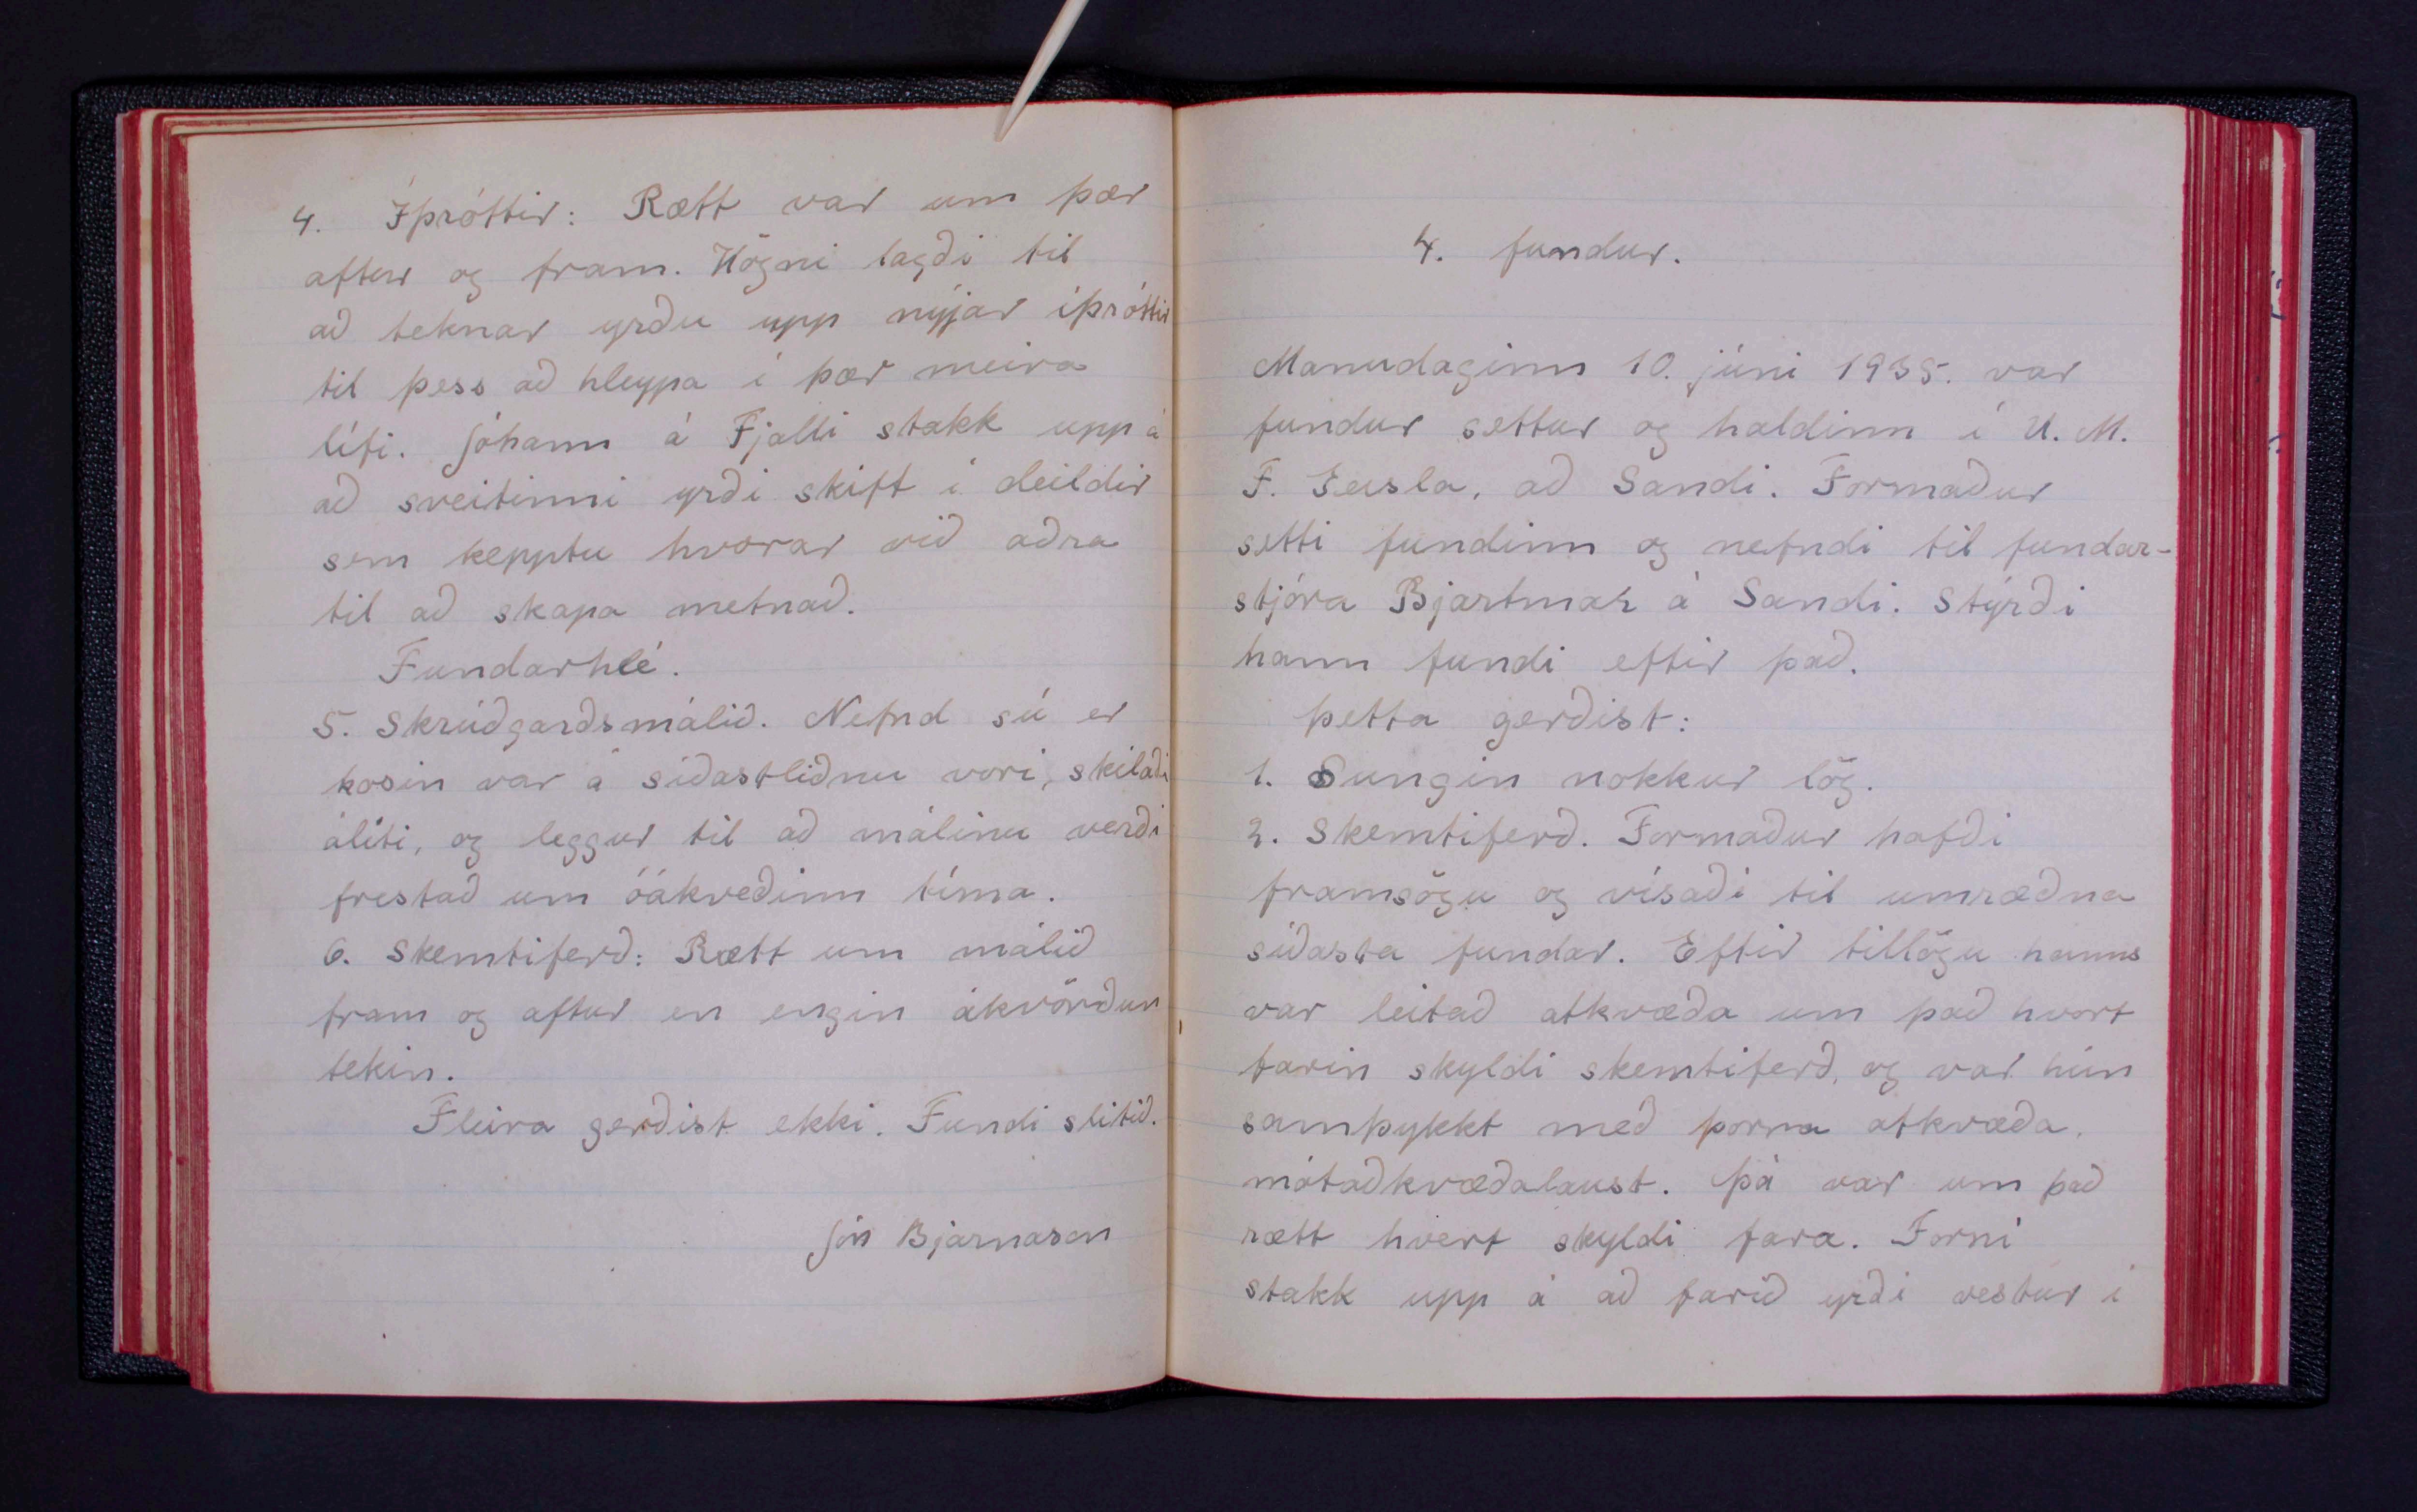 4. Íþróttir: Rætt var um þær
aftur og fram. Högni lagði til
að teknar yrðu upp nýjar íþróttir
til þess að hleypa í þær meira
lífi. Jóhann á Fjalli stakk upp á
að sveitinni yrði skift í deildir
sem kepptu hvorar við aðra
til að skapa metnað.
Fundarhlé.
5. Skrúðgarðsmálið. Nefnd sú er
kosin var á síðastliðnu vori, skilaði
áliti, og leggur til að málinu verði
frestað um óákveðinn tíma.
6. Skemtiferð: Rætt um málið
fram og aftur en engin ákvörðun
tekin.
Fleira gerðist ekki. Fundi slitið.
Jón Bjarnason
4. fundur.
Manudaginn 10. júni 1935. var
fundur settur og haldinn í U. M.
F. Geisla, að Sandi. Formaður
setti fundinn og nefndi til fundar-
stjóra Bjartmar á Sandi. Stýrði
hann fundi eftir það.
Þetta gerðist:
1. Sungin nokkur lög.
2. Skemtiferð. Formaður hafði
framsögu og vísaði til umræðna
síðasta fundar. Eftir tillögu hanns
var leitað atkvæða um það hvort
farin skyldi skemtiferð, og var hún
samþykkt með þorra atkvæða,
mótaðkvæðalaust. Þá var um það
rætt hvert skyldi fara. Forni
stakk upp á að farið yrði vestur í